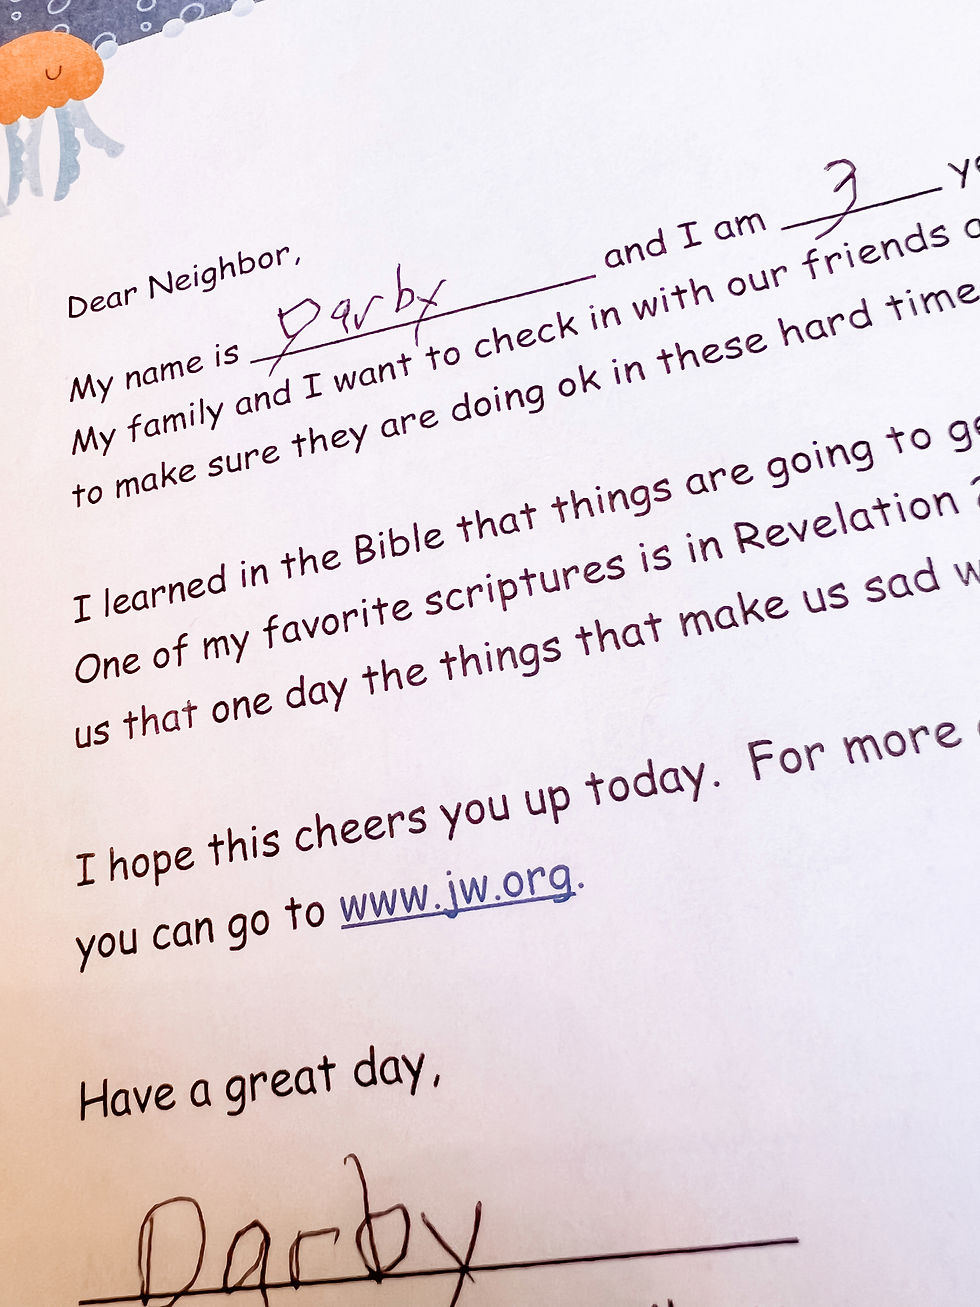 Dear Neighbor,
My name is Darby and I am 3
My family and I want to check in with our friends
to make sure they are doing ok in these hard time
I learned in the Bible that things are going to
One of my favorite scriptures is in Revelation
us that one day the things that make us sad
I hope this cheers you up today. For more
you can go to www.jw.org.
Have a great day,
Darby